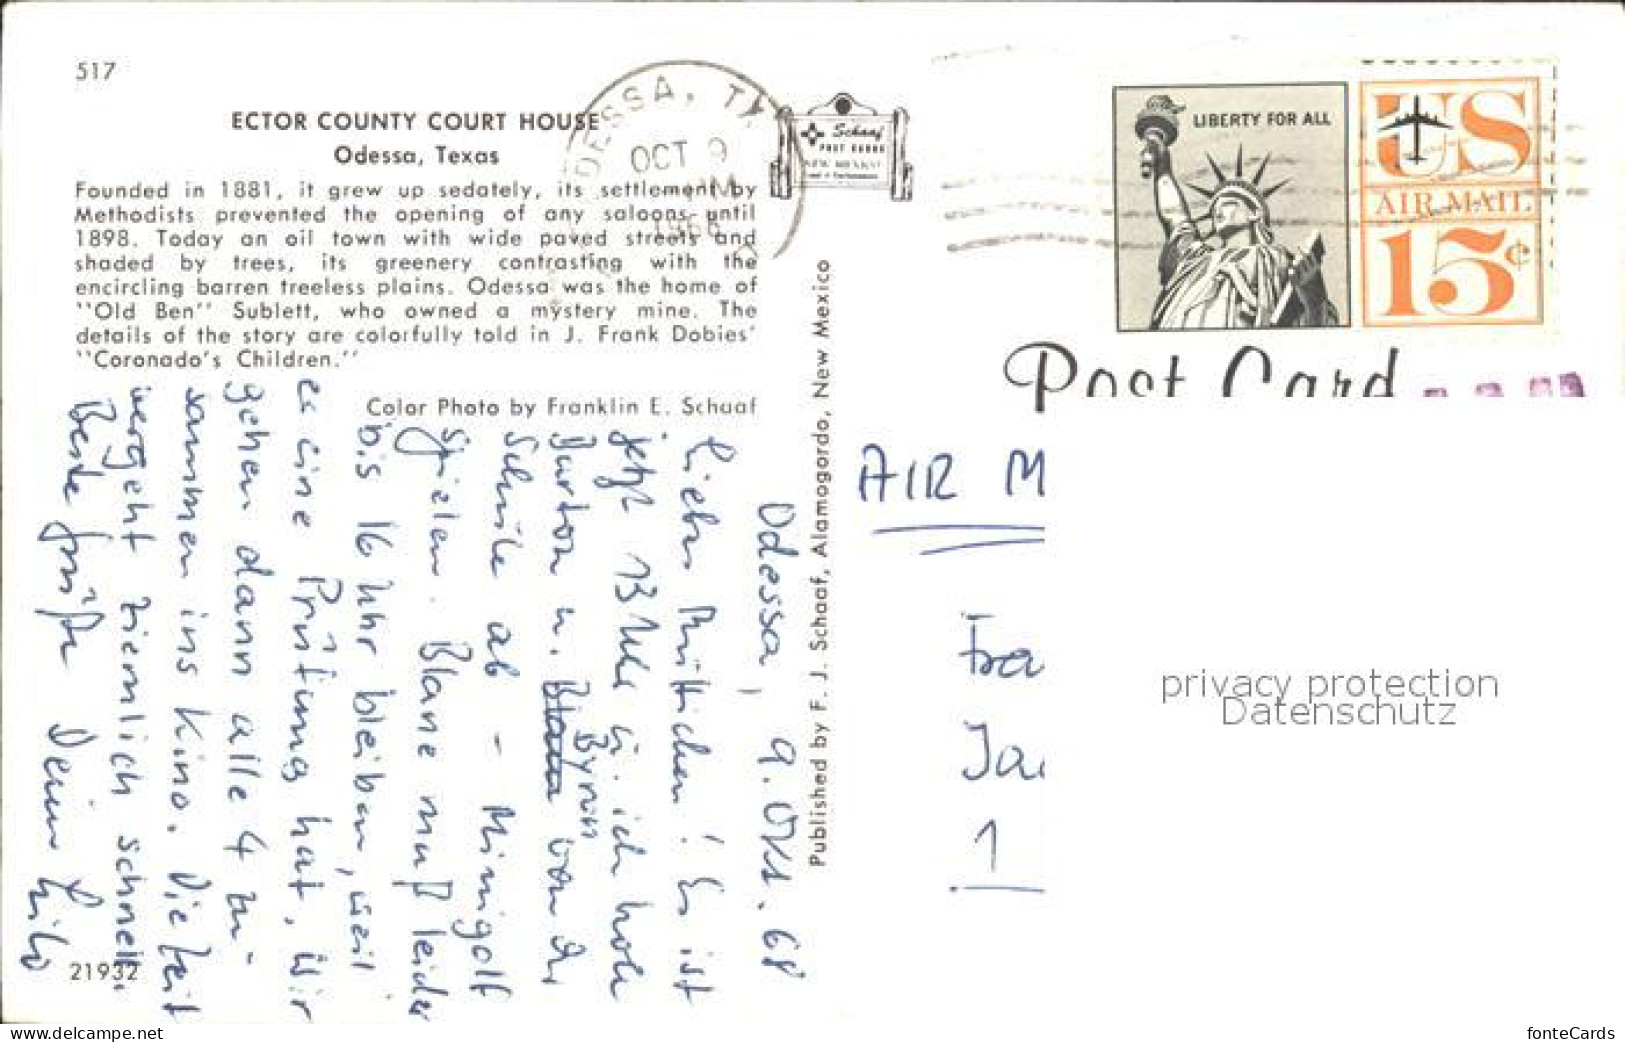 517
ECTOR COUNTY COURT HOUSE
Odessa, Texas
Founded in 1881, it grew up sedately, its settlement by
Methodists prevented the opening of any saloons until
1898. Today an oil town with wide paved streets and
shaded by trees, its greenery contrasting with the
encircling barren treeless plains. Odessa was the home of
"Old Ben" Sublett, who owned a mystery mine. The
details of the story are colorfully told in J. Frank Dobies'
"Coronado's Children."
Color Photo by Franklin E. Schaaf
ODESSA, TX
OCT 9
PM
1968
Schaaf
POST CARDS
NEW MEXICO
LIBERTY FOR ALL
US
AIR MAIL
15¢
Post Card
Published by F. J. Schaaf, Alamogordo, New Mexico
Odessa, 9. Okt. 68
Liebes Muttichen! Es ist
jetzt 13 Uhr u. ich hole
Burton u. Byron von der
Schule ab - Minigolf
spielen. Blane muß leider
bis 16 Uhr bleiben, weil
er eine Prüfung hat. Wir
gehen dann alle 4 zu-
sammen ins Kino. Die Zeit
vergeht ziemlich schnell.
Beste Grüße Dein
21932
AIR M
Fra
Ja
1
privacy protection
Datenschutz
www.delcampe.net
fonteCards